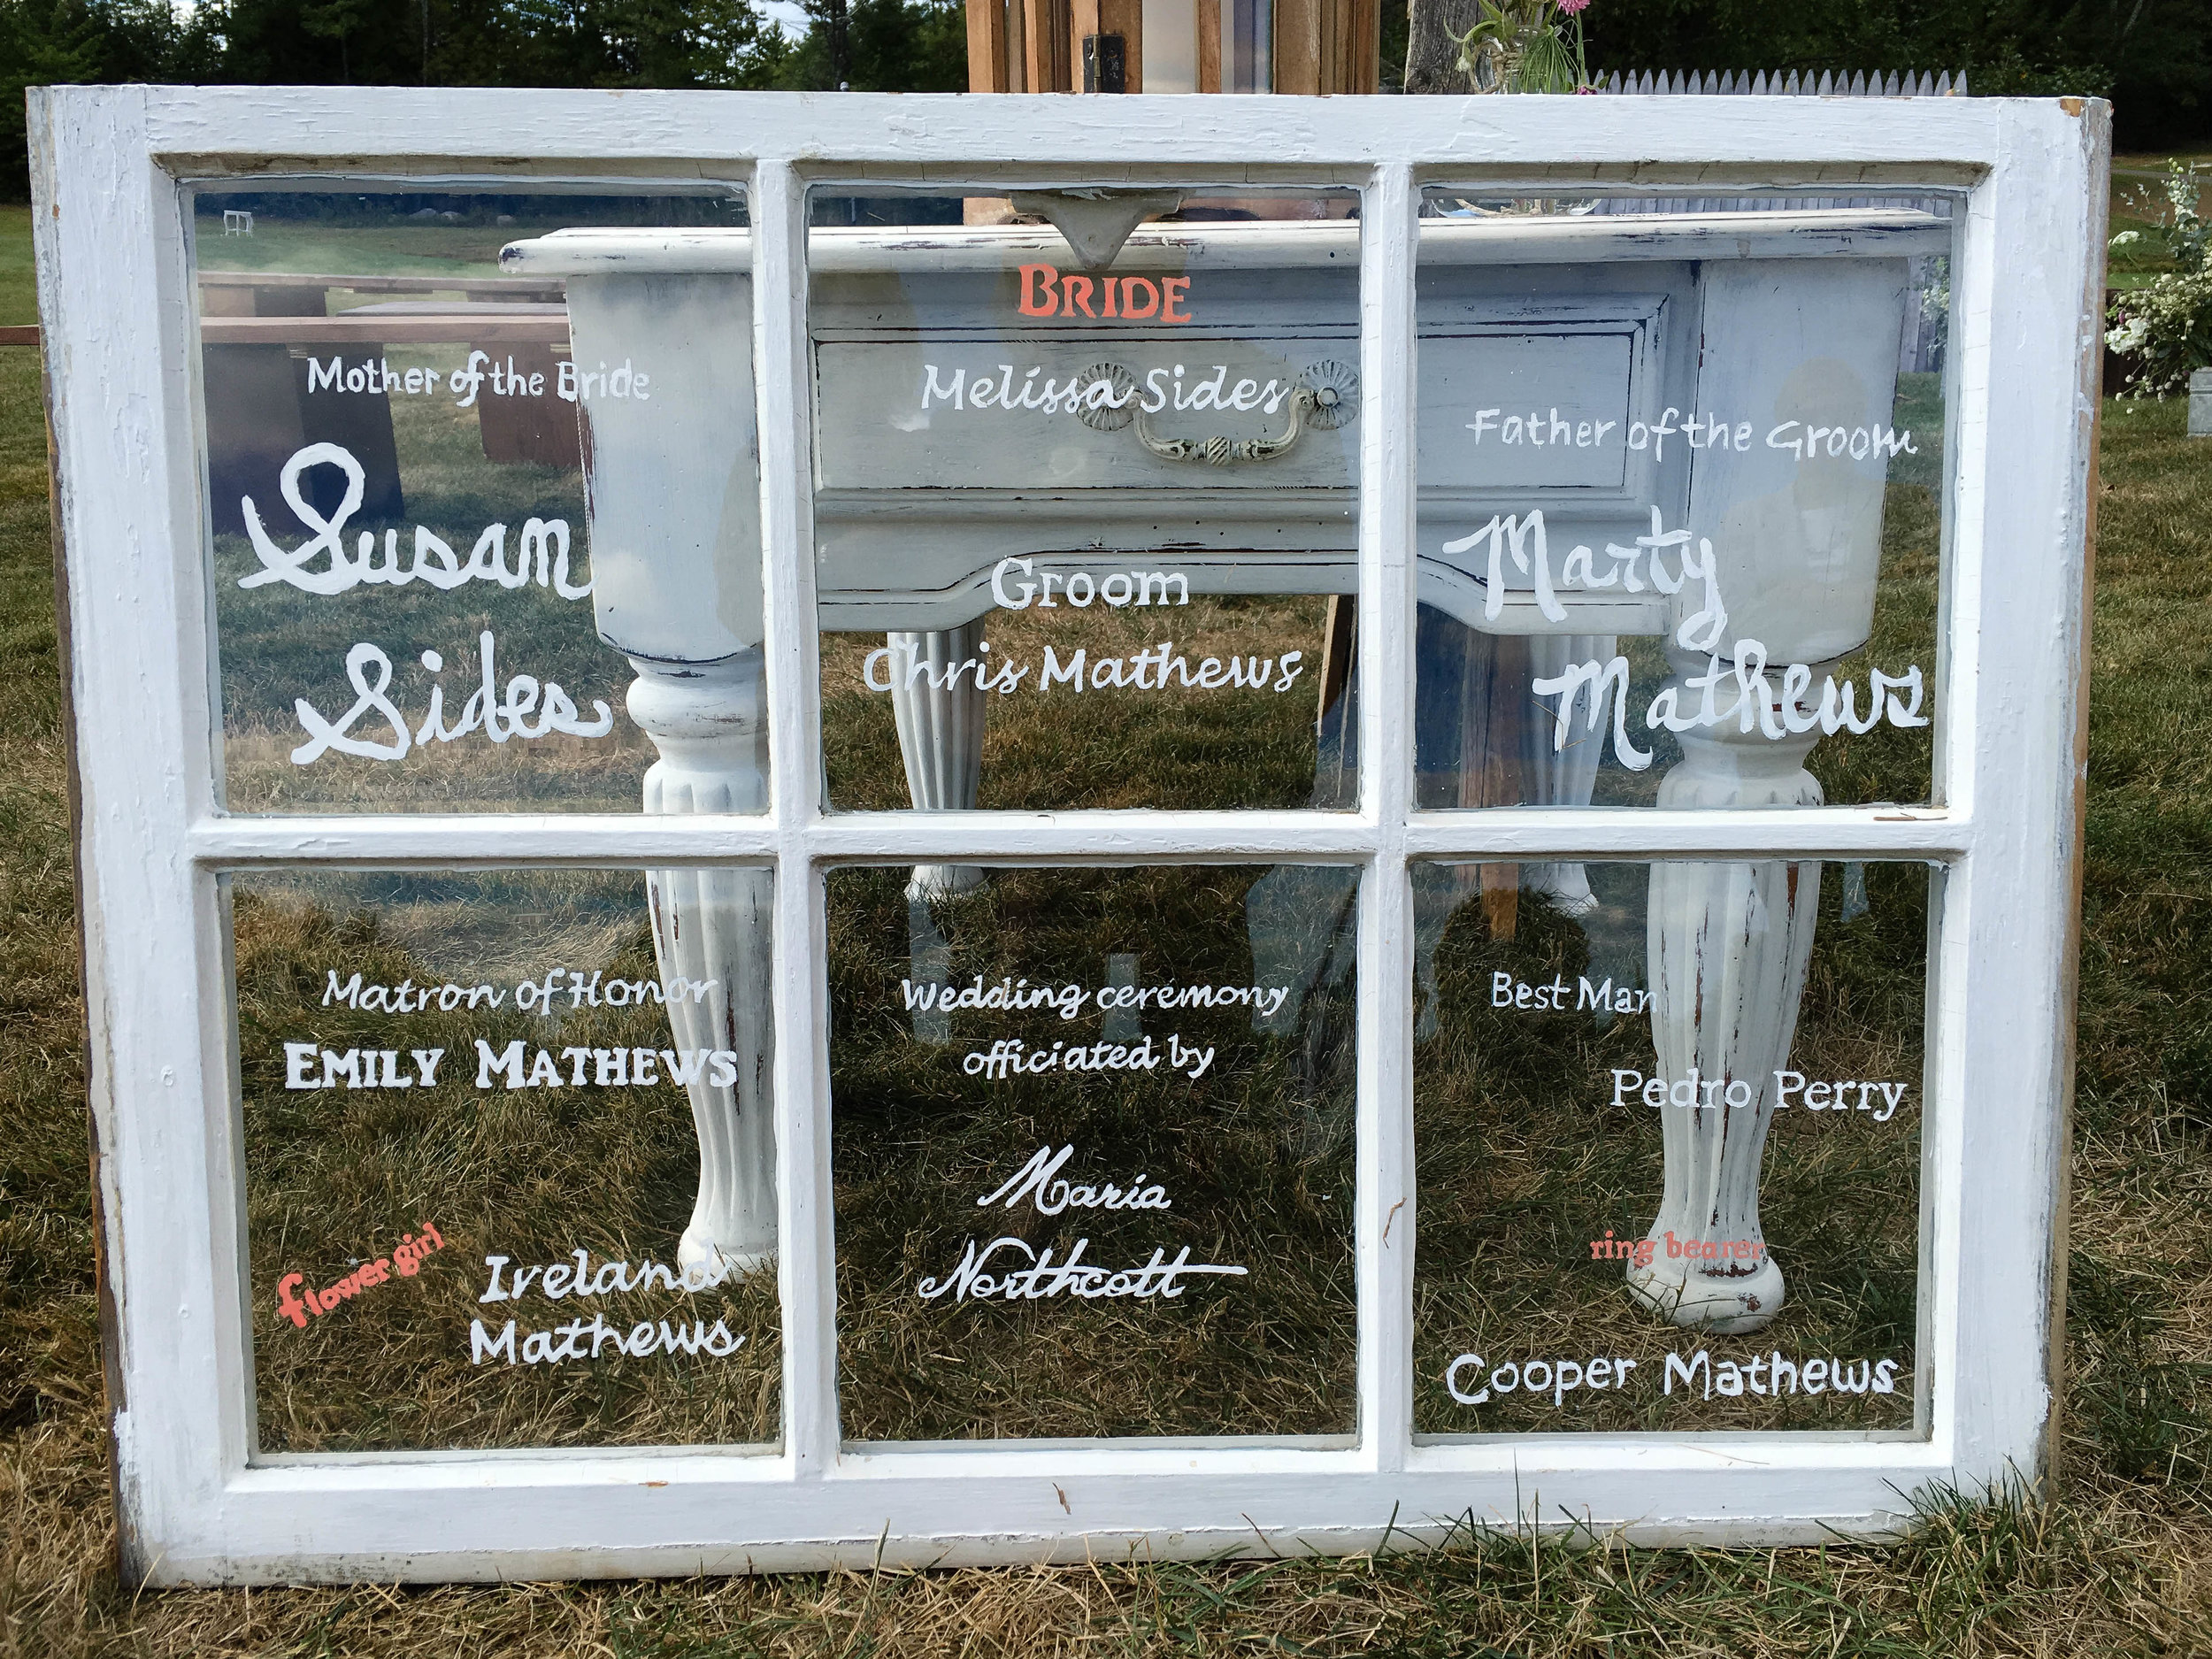 Mother of the Bride
Susan
Sides
BRIDE
Melissa Sides
Groom
Chris Mathews
Father of the Groom
Marty
Mathews
Matron of Honor
EMILY MATHEWS
flower girl
Ireland
Mathews
Wedding ceremony
officiated by
Maria
Northcott
Best Man
Pedro Perry
ring bearer
Cooper Mathews